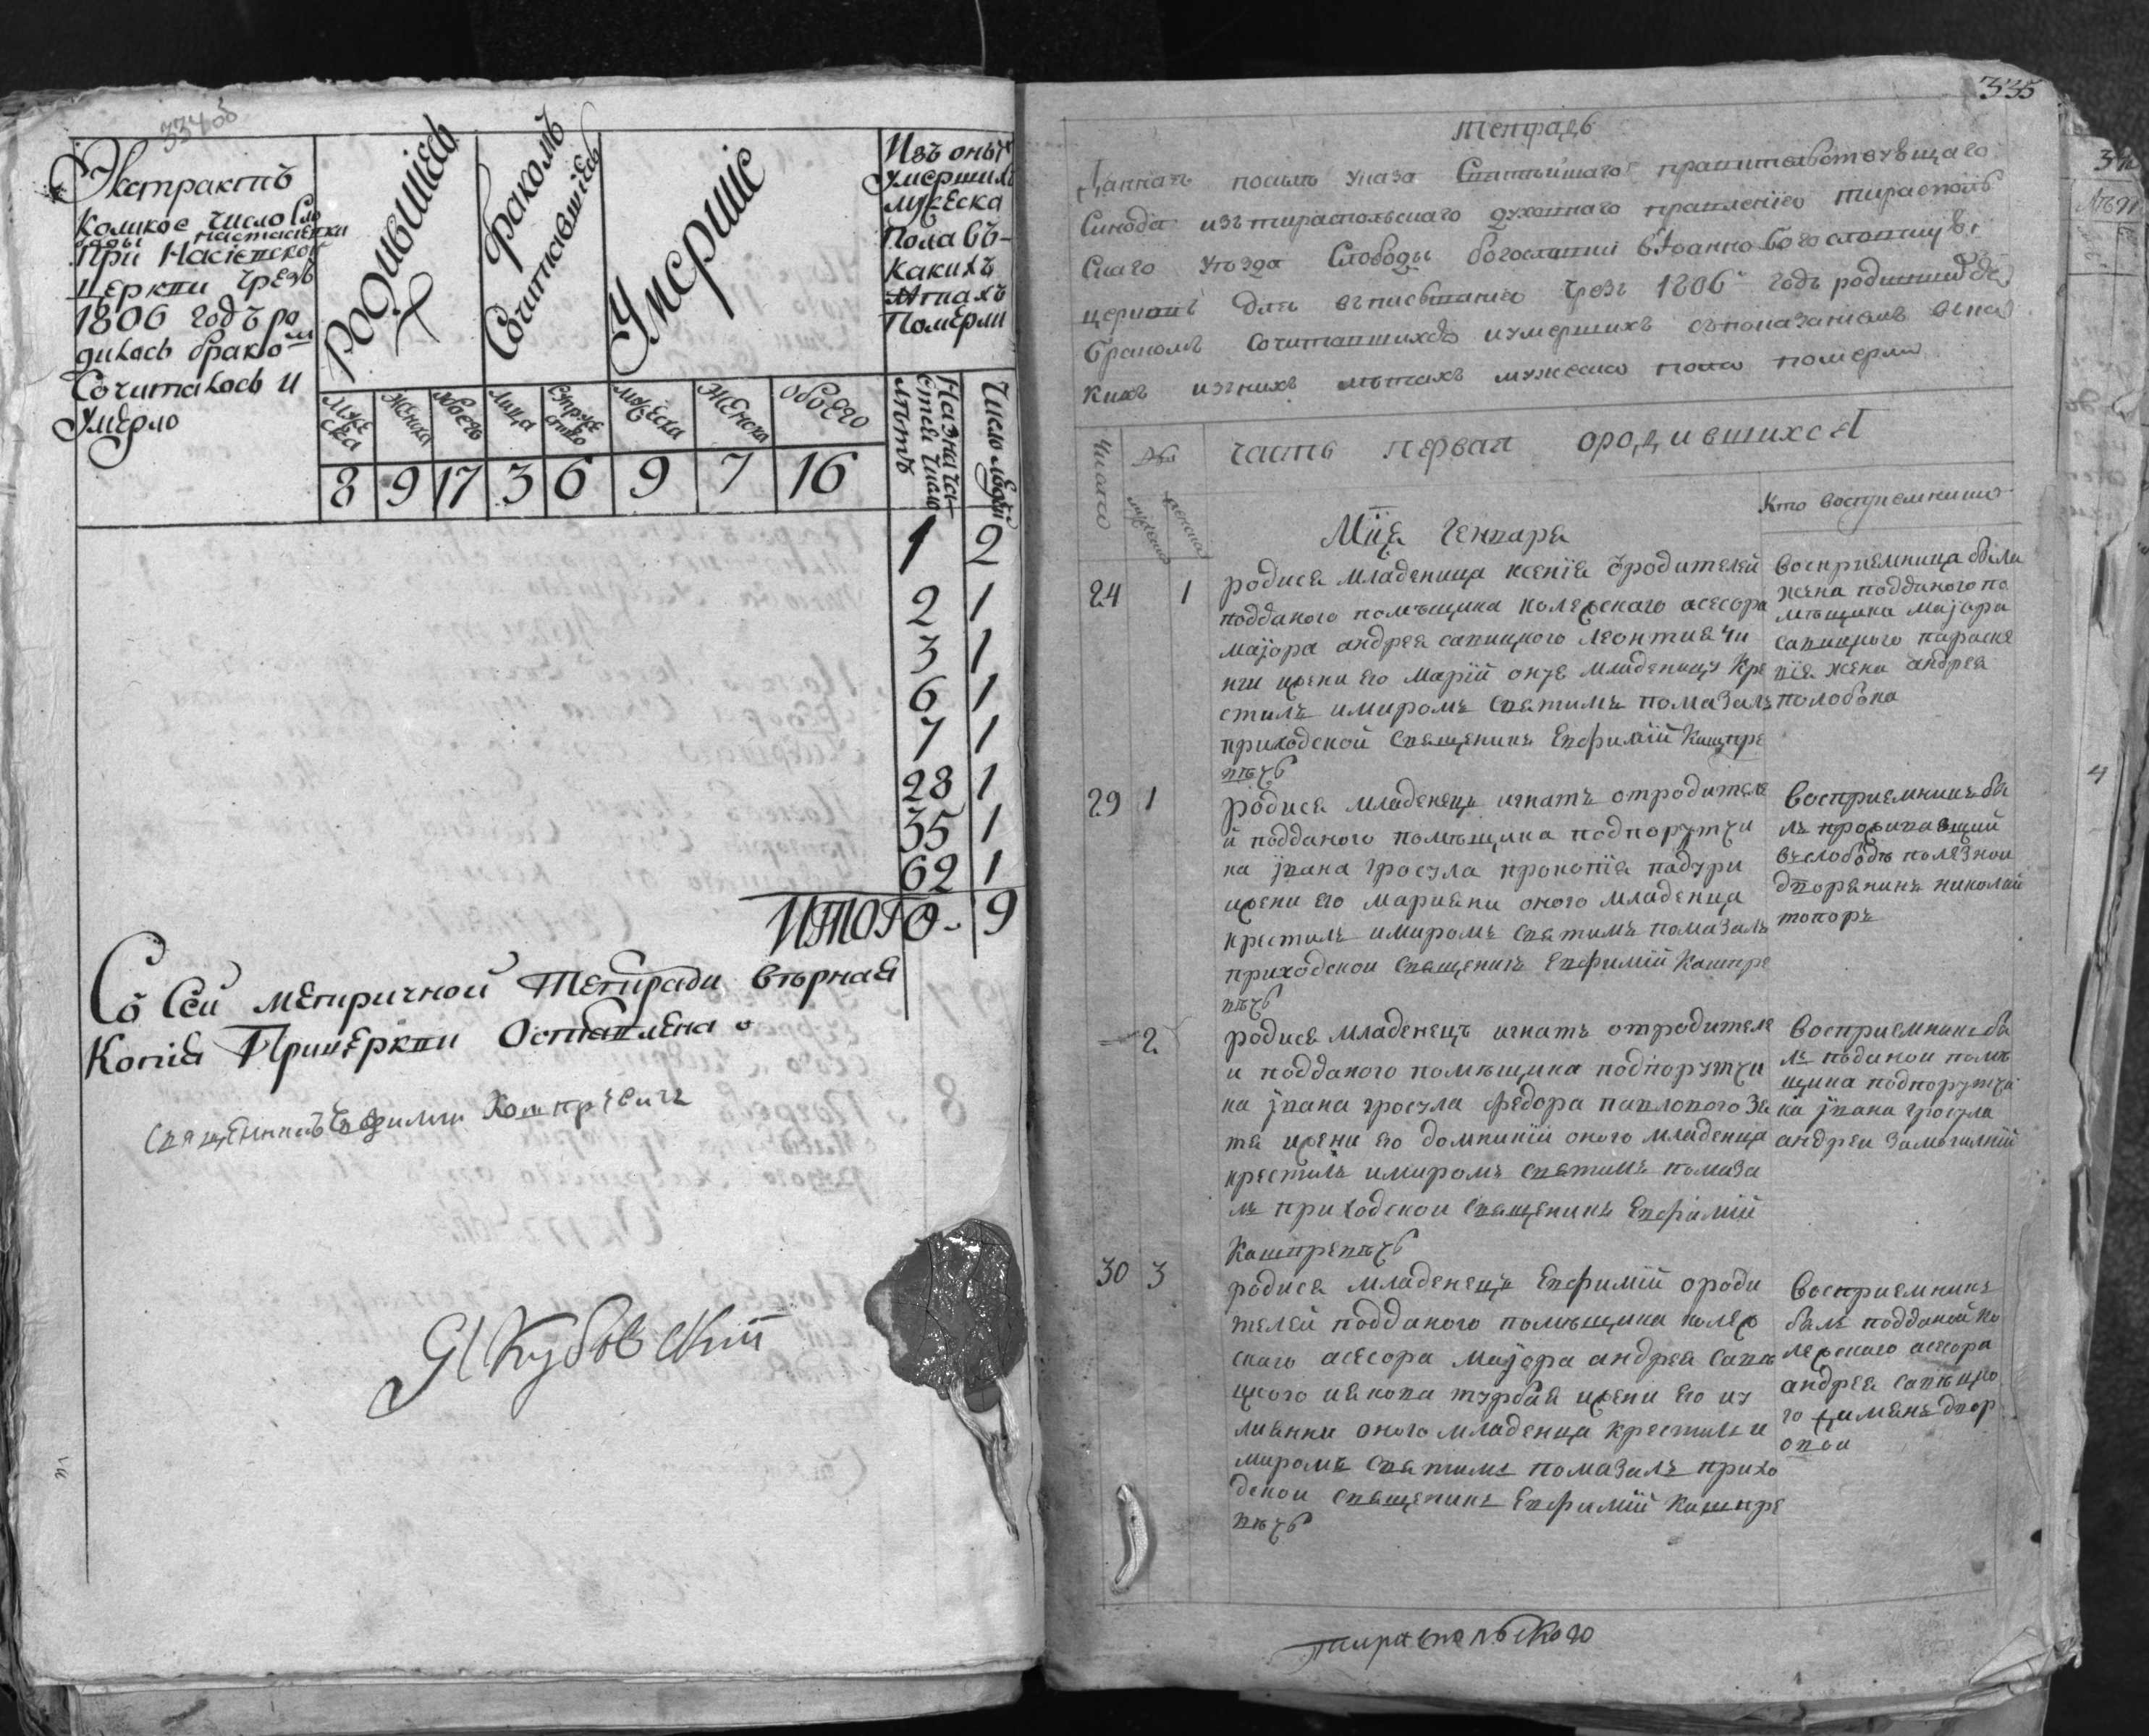 334об
Экстрактъ
Коликое число Сло
боды Настасіевки
При Насіевской
Церкви Чрезъ
1806 годъ ро
дилось брако м
Сочиталось и
Умерло
Родившіесь
бракомъ
Сочитавшіесь
Умершіе
Изъ оныхъ
Умершихъ
мужеска
Пола въ
Какихъ
лѣтахъ
Померли
муже
ска
женска
обоего
лица
супруже
ство
мужеска
женска
обоего
На значы
стей число
лѣтъ
Число людей
8 9 17 3 6 9 7 16
1 2
2 1
3 1
6 1
7 1
28 1
35 1
62 1
ИТОГО - 9
Со Сей метричной Тетради вѣрная
Копія При церкви Оставлена
Священникъ Евфимий
Якубовский
335
тетрадь
Данная по силѣ указа Святѣйшаго правительствующаго
Синода изъ тираспольскаго духовнаго правленіа тирасполь
скаго уѣзда Слободы богославки в Іоанно богословскую
церковь для вписыванія чрезъ 1806 годъ родившихся
бракомъ сочитавшихся и умершихъ съ показаніемъ въ ка
кихъ изъ нихъ лѣтахъ мужеска пола померли
Число
мужеска
женска
часть первая о родившихся
Кто восприемники
Мца Генваря
24 1
родися младеница ксеніа ѿ родителей
подданого помѣщика колежскаго асесора
маіора андрея савицкого леонтиа чи
нги жени его маріи онуе младеницу кре
стилъ и миромъ святимъ помазалъ
приходской священикъ Евфимій Кашпре
вѣчъ
восприемница била
жена подданого по
мѣщика маіора
савицкого параске
віа жена андрея
полобока
29 1
родися младенецъ игнатъ от родителе
й подданого помѣщика подпорутчи
ка івана гросула прокопіа падури
жени его марияни оного младенца
крестилъ и миромъ святимъ помазалъ
приходской священикъ Евфимій Кашпре
вѣчъ
восприемникъ би
лъ проживающий
в слободѣ полязной
дворянинъ николай
топоръ
- 2
родися младенецъ игнатъ от родителе
и подданого помѣщика подпорутчи
ка івана гросула федора павлового зя
тя жени его домникіи оного младенца
крестилъ и миромъ святимъ помаза
лъ приходской священикъ Евфимій
Кашпревѣчъ
восприемникъ би
лъ поданой помѣ
щика подпорутчи
ка івана гросула
андрей замогилний
30 3
родися младенецъ Евфимій о роди
телей подданого помѣщика колеж
скаго асесора маіора андрея савѣ
цкого иякова турбая жени его иу
лиянни оного младенца крестилъ и
миромъ святимъ помазалъ прихо
дской священикъ Евфимій Кашпре
вѣчъ
восприемникъ
билъ подданой ко
лежскаго асесора
андрея савѣцко
го двор
овой
тираспольского